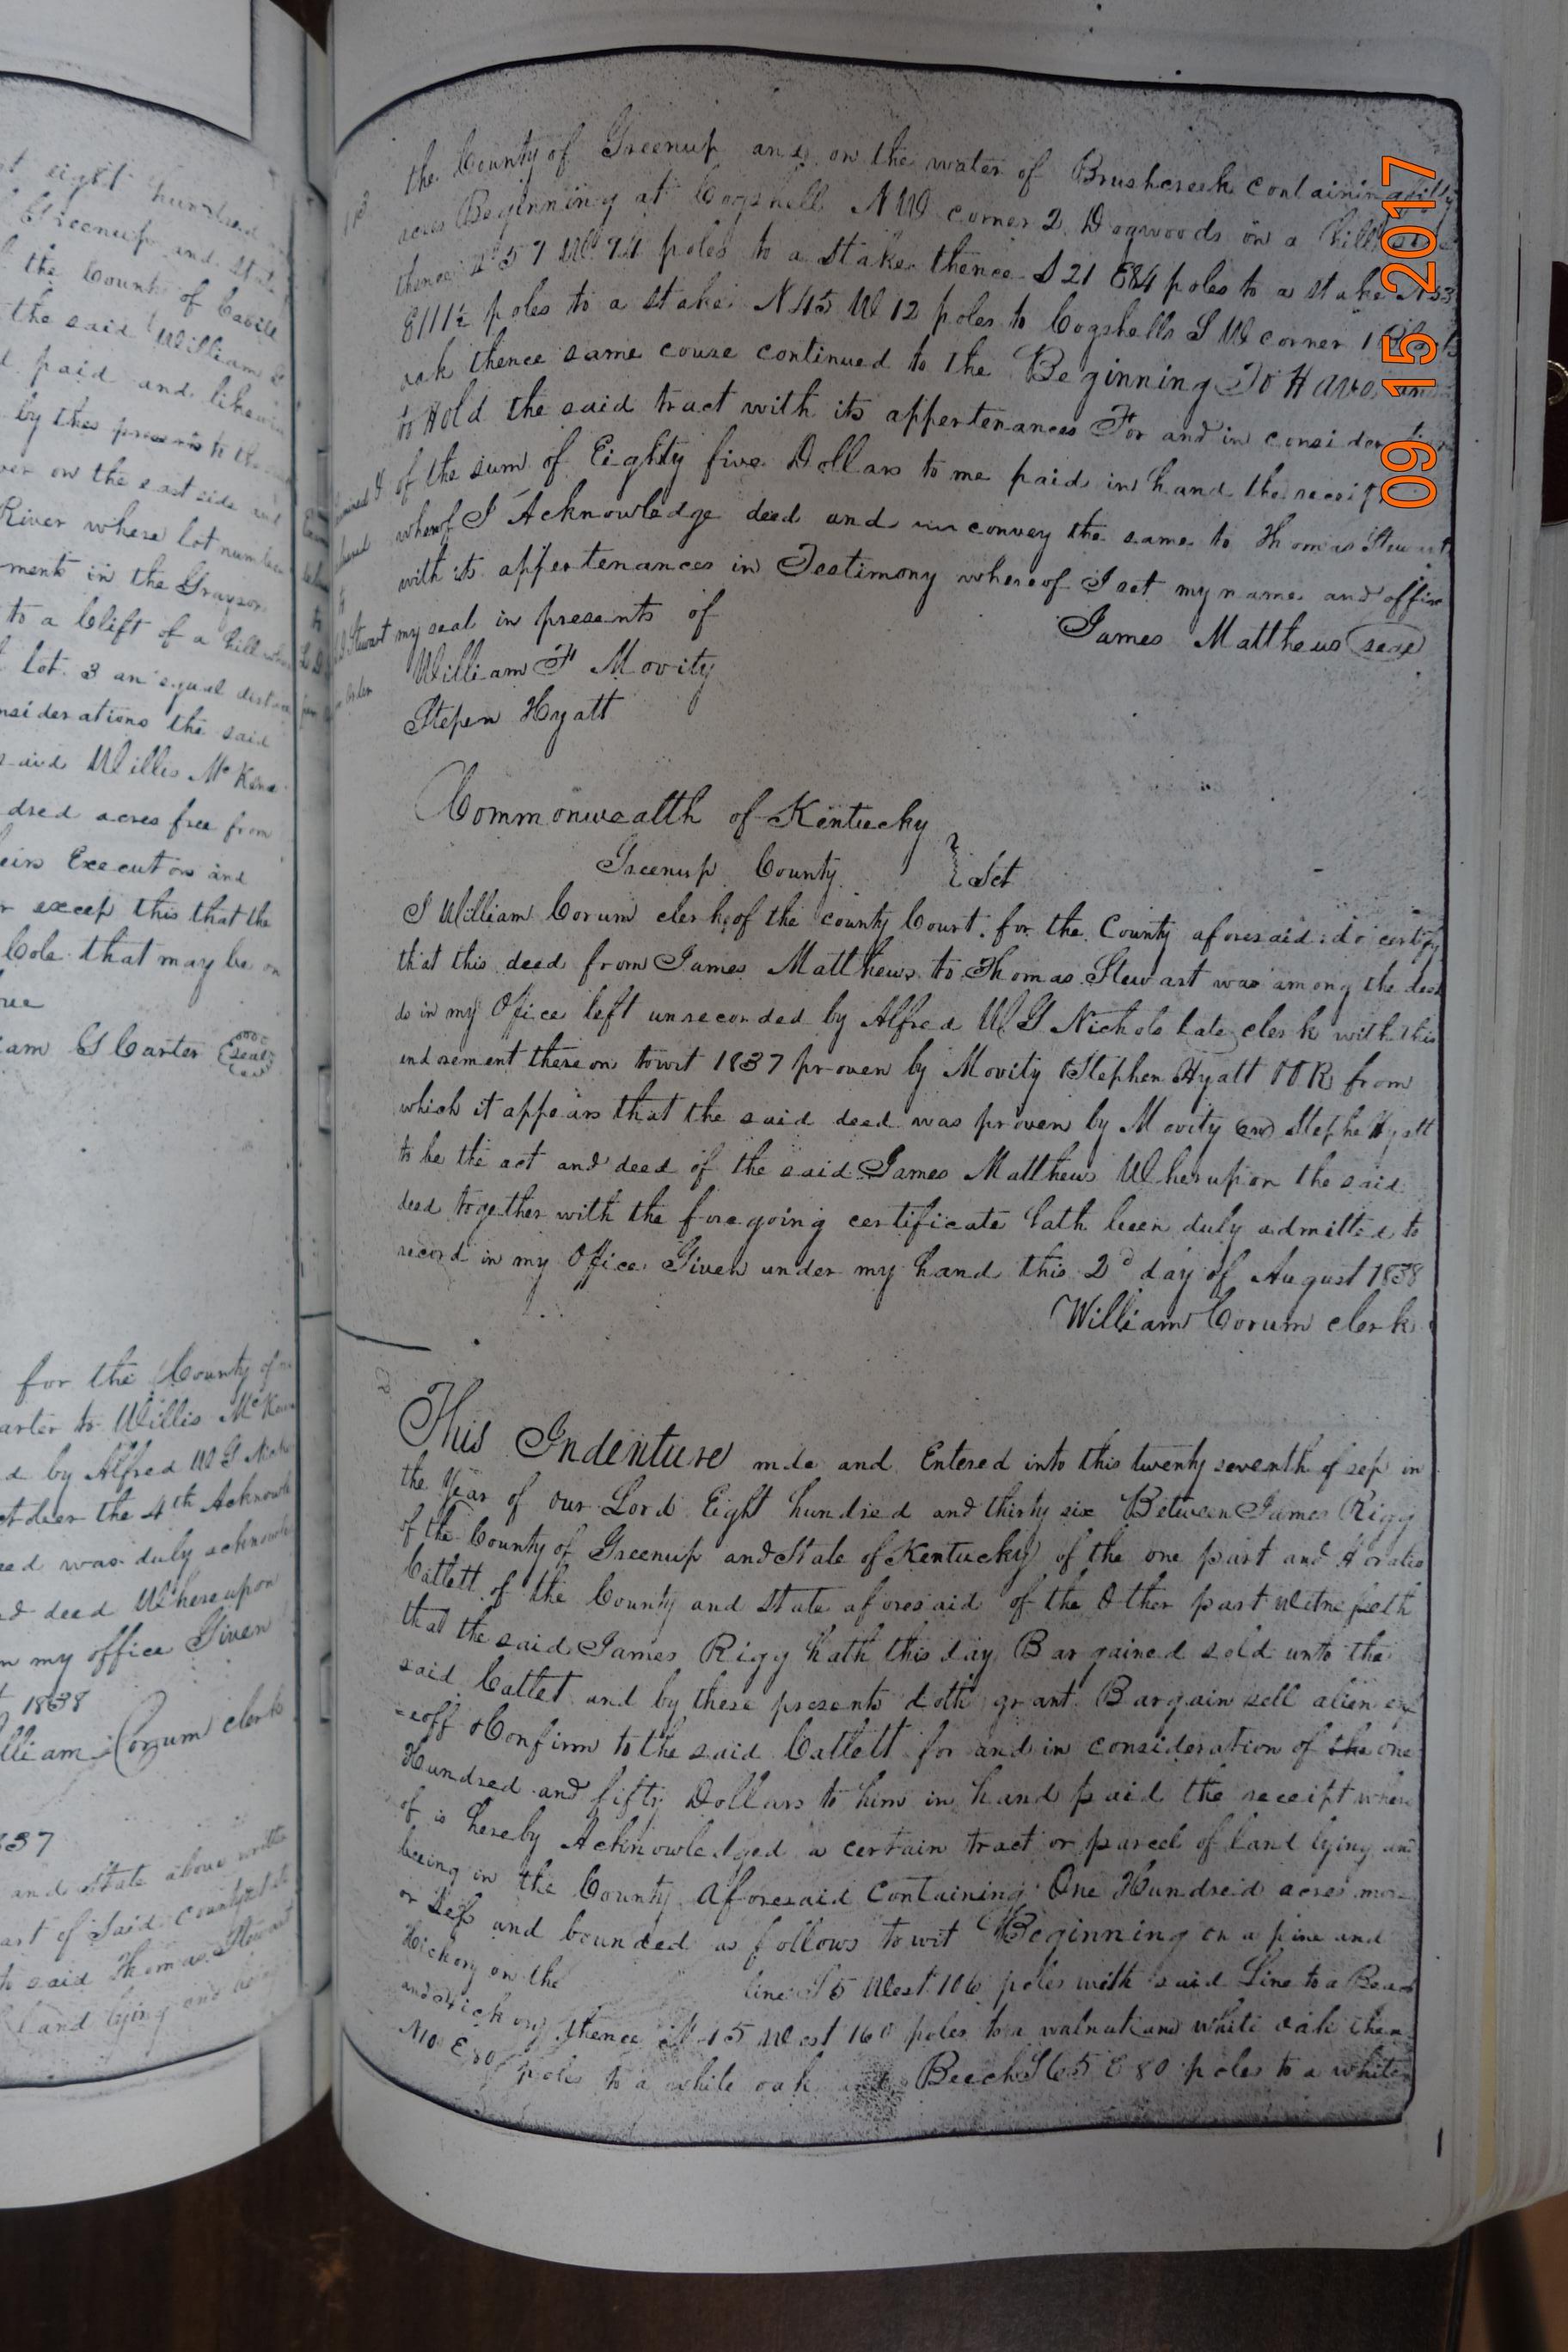 st eight hundred
Greenup and State
the County of
the said William
paid and likewise
by thes presents to the
on the east side and
River where lot number
ment in the Grayson
to a Clift of a hill
lot 3 an equal
nsiderations the said
said Willis McKen
dred acres free from
eirs Executors and
r excep this that the
Cole that may be on
am G Carter (seal)
for the County of
arter to Willis McKen
d by Alfred W G Nicho
the 4th Acknowl
eed was duly acknowle
d deed Whereupon
n my office Given
1838
lliam Corum clerk
837
and State above
art of Said County
to said Thomas Stewart
land lying and being
Stewart
the County of Greenup and on the water of Brushcreek containing fifty
acres Beginning at Cogshell N W corner 2 Dogwoods on a hill side
thence 57 W 74 poles to a stake thence S 21 E 84 poles to a stake N 53
E 111½ poles to a stake N 45 W 12 poles to Cogshells S W corner 1
oak thence same couse continued to the Beginning To Have and
to Hold the said tract with its appertenances For and in consideration
of the sum of Eighty five Dollars to me paid in hand the receipt
wherof I Acknowledge deed and convey the same to Thomas Stewart
with its appertenances in Testimony whereof I set my name and affix
my seal in presents of
James Matthews (seal)
William F Movity
Stepen Hyatt
Commonwealth of Kentucky
Greenup County } Sct
I William Corum clerk of the county Court for the County aforesaid do certify
that this deed from James Matthews to Thomas Stewart was among the dee
ds in my Office left unrecorded by Alfred W G Nichols late clerk with this
indorsement thereon towit 1837 proven by Movity & Stephen Hyatt O R from
which it appears that the said deed was proven by Movity and Stephe Hyatt
to be the act and deed of the said James Matthews Wherupon the said
deed together with the foregoing certificate hath been duly admitted to
record in my Office Given under my hand this 2d day of August 1838
William Corum clerk
This Indenture mde and Entered into this twenty seventh of sep in
the Year of our Lord Eight hundred and thirty six Between James Rigg
of the County of Greenup and State of Kentucky of the one part and Horatio
Catlett of the County and State aforesaid of the Other part Witnesseth
that the said James Rigg hath this day Bargained sold unto the
said Catlet and by these presents doth grant Bargain sell alien enf
=eoff & Confirm to the said Catlett for and in consideration of the one
Hundred and fifty Dollars to him in hand paid the receipt where
of is hereby Acknowledged a certain tract or parcel of land lying and
beeing in the County Aforesaid Containing One Hundreid acres more
or Less and bounded as follows towit Beginning on a pine and
Hickory on the line S 5 West 106 poles with said Line to a Beach
and Hickory thence N 15 West 160 poles to a walnut and white oak then
N 10 E 80 poles to a white oak and Beech S 65 E 80 poles to a white
09 15 2017